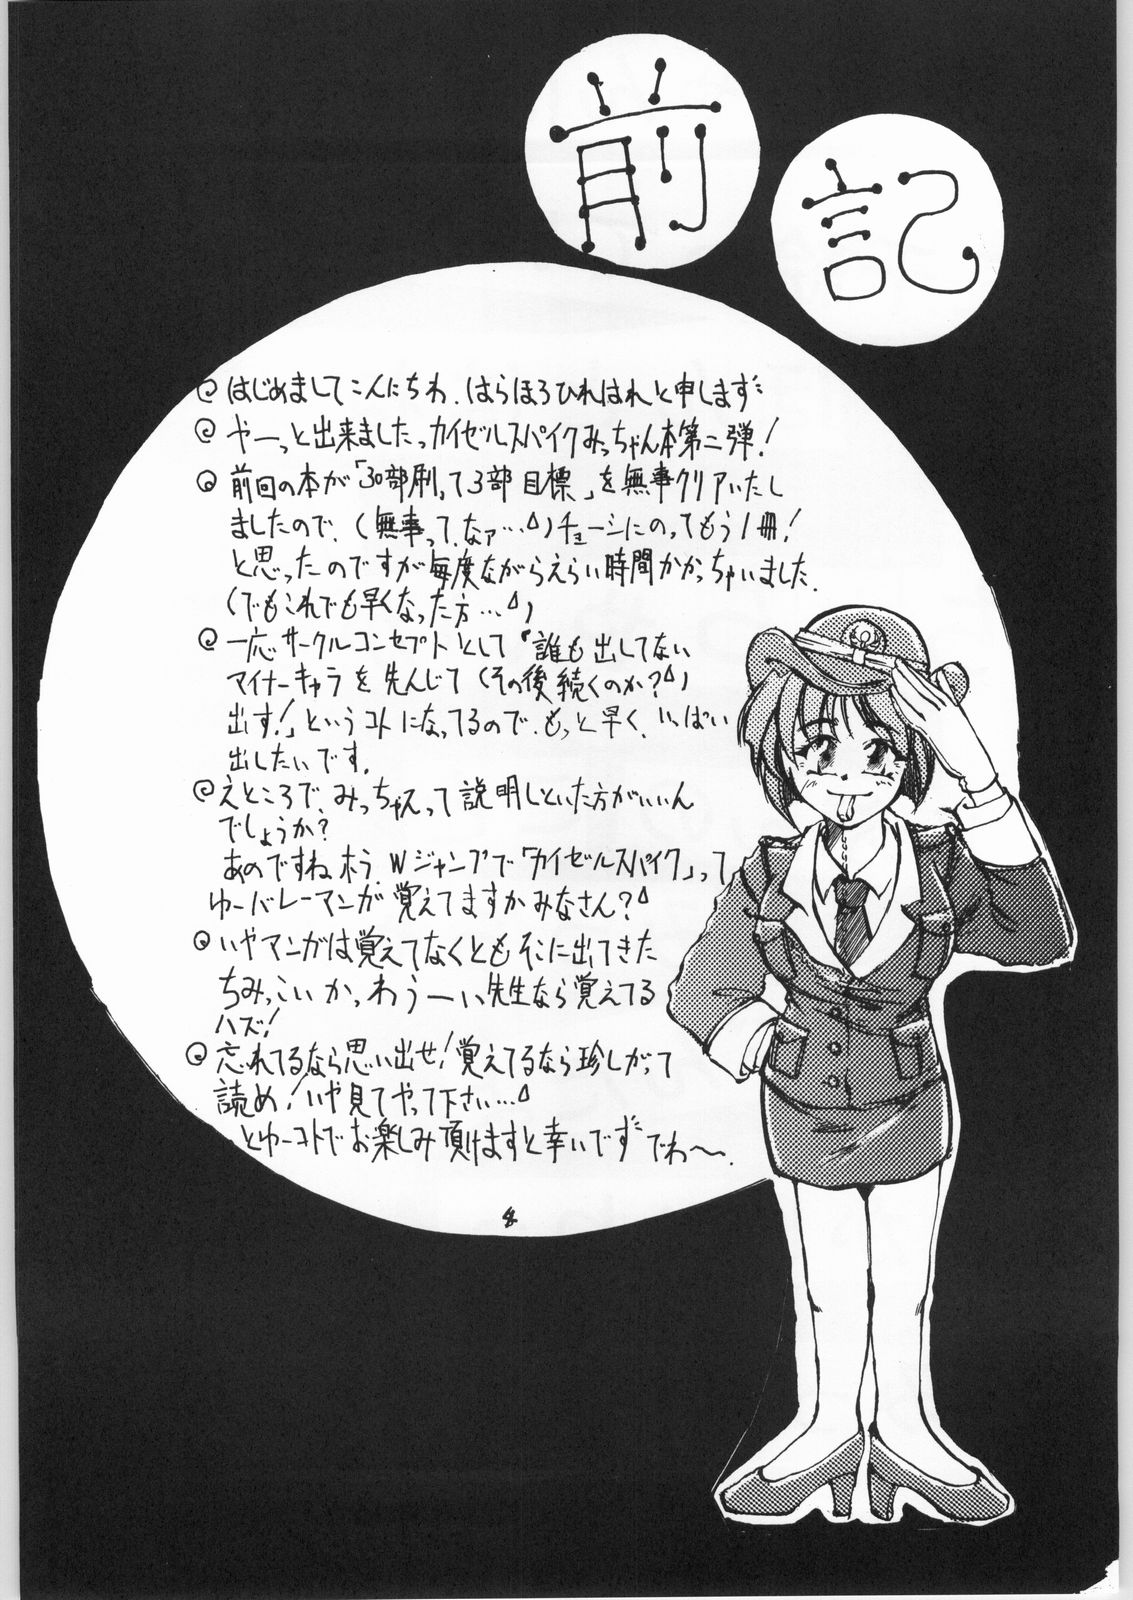 前記
はじめましてこんにちわ、はらほろひれはれと申しますﾞ
やーっと出来ましたっカイゼルスパイクみっちゃん本第二弾!
前回の本が「30部刷って3部目標」を無事クリアいたし
ましたので、(無事って、なァ…)チョーシにのってもう1冊!
と思ったのですが毎度ながらえらい時間かかっちゃいました.
(でもこれでも早くなった方…)
一応サークルコンセプトとして「誰も出してない
マイナーキャラを先んじて(その後続くのか?)
出す!」というコトになってるので、もっと早く、いっぱい
出したいです.
えところで、みっちゃんって説明しといた方がいいん
でしょうか?
あのですねホラWジャンプで「カイゼルスパイク」って
ゆーバレーマンガ覚えてますかみなさん?
いやマンガは覚えてなくともそこに出てきた
ちみっこいかっわうーいい先生なら覚えてる
ハズ!
忘れてるなら思い出せ!覚えてるなら珍しがって
読め!いや見てやって下さい…
とゆーコトでお楽しみ頂けますと幸いですﾞでわ〜.
4